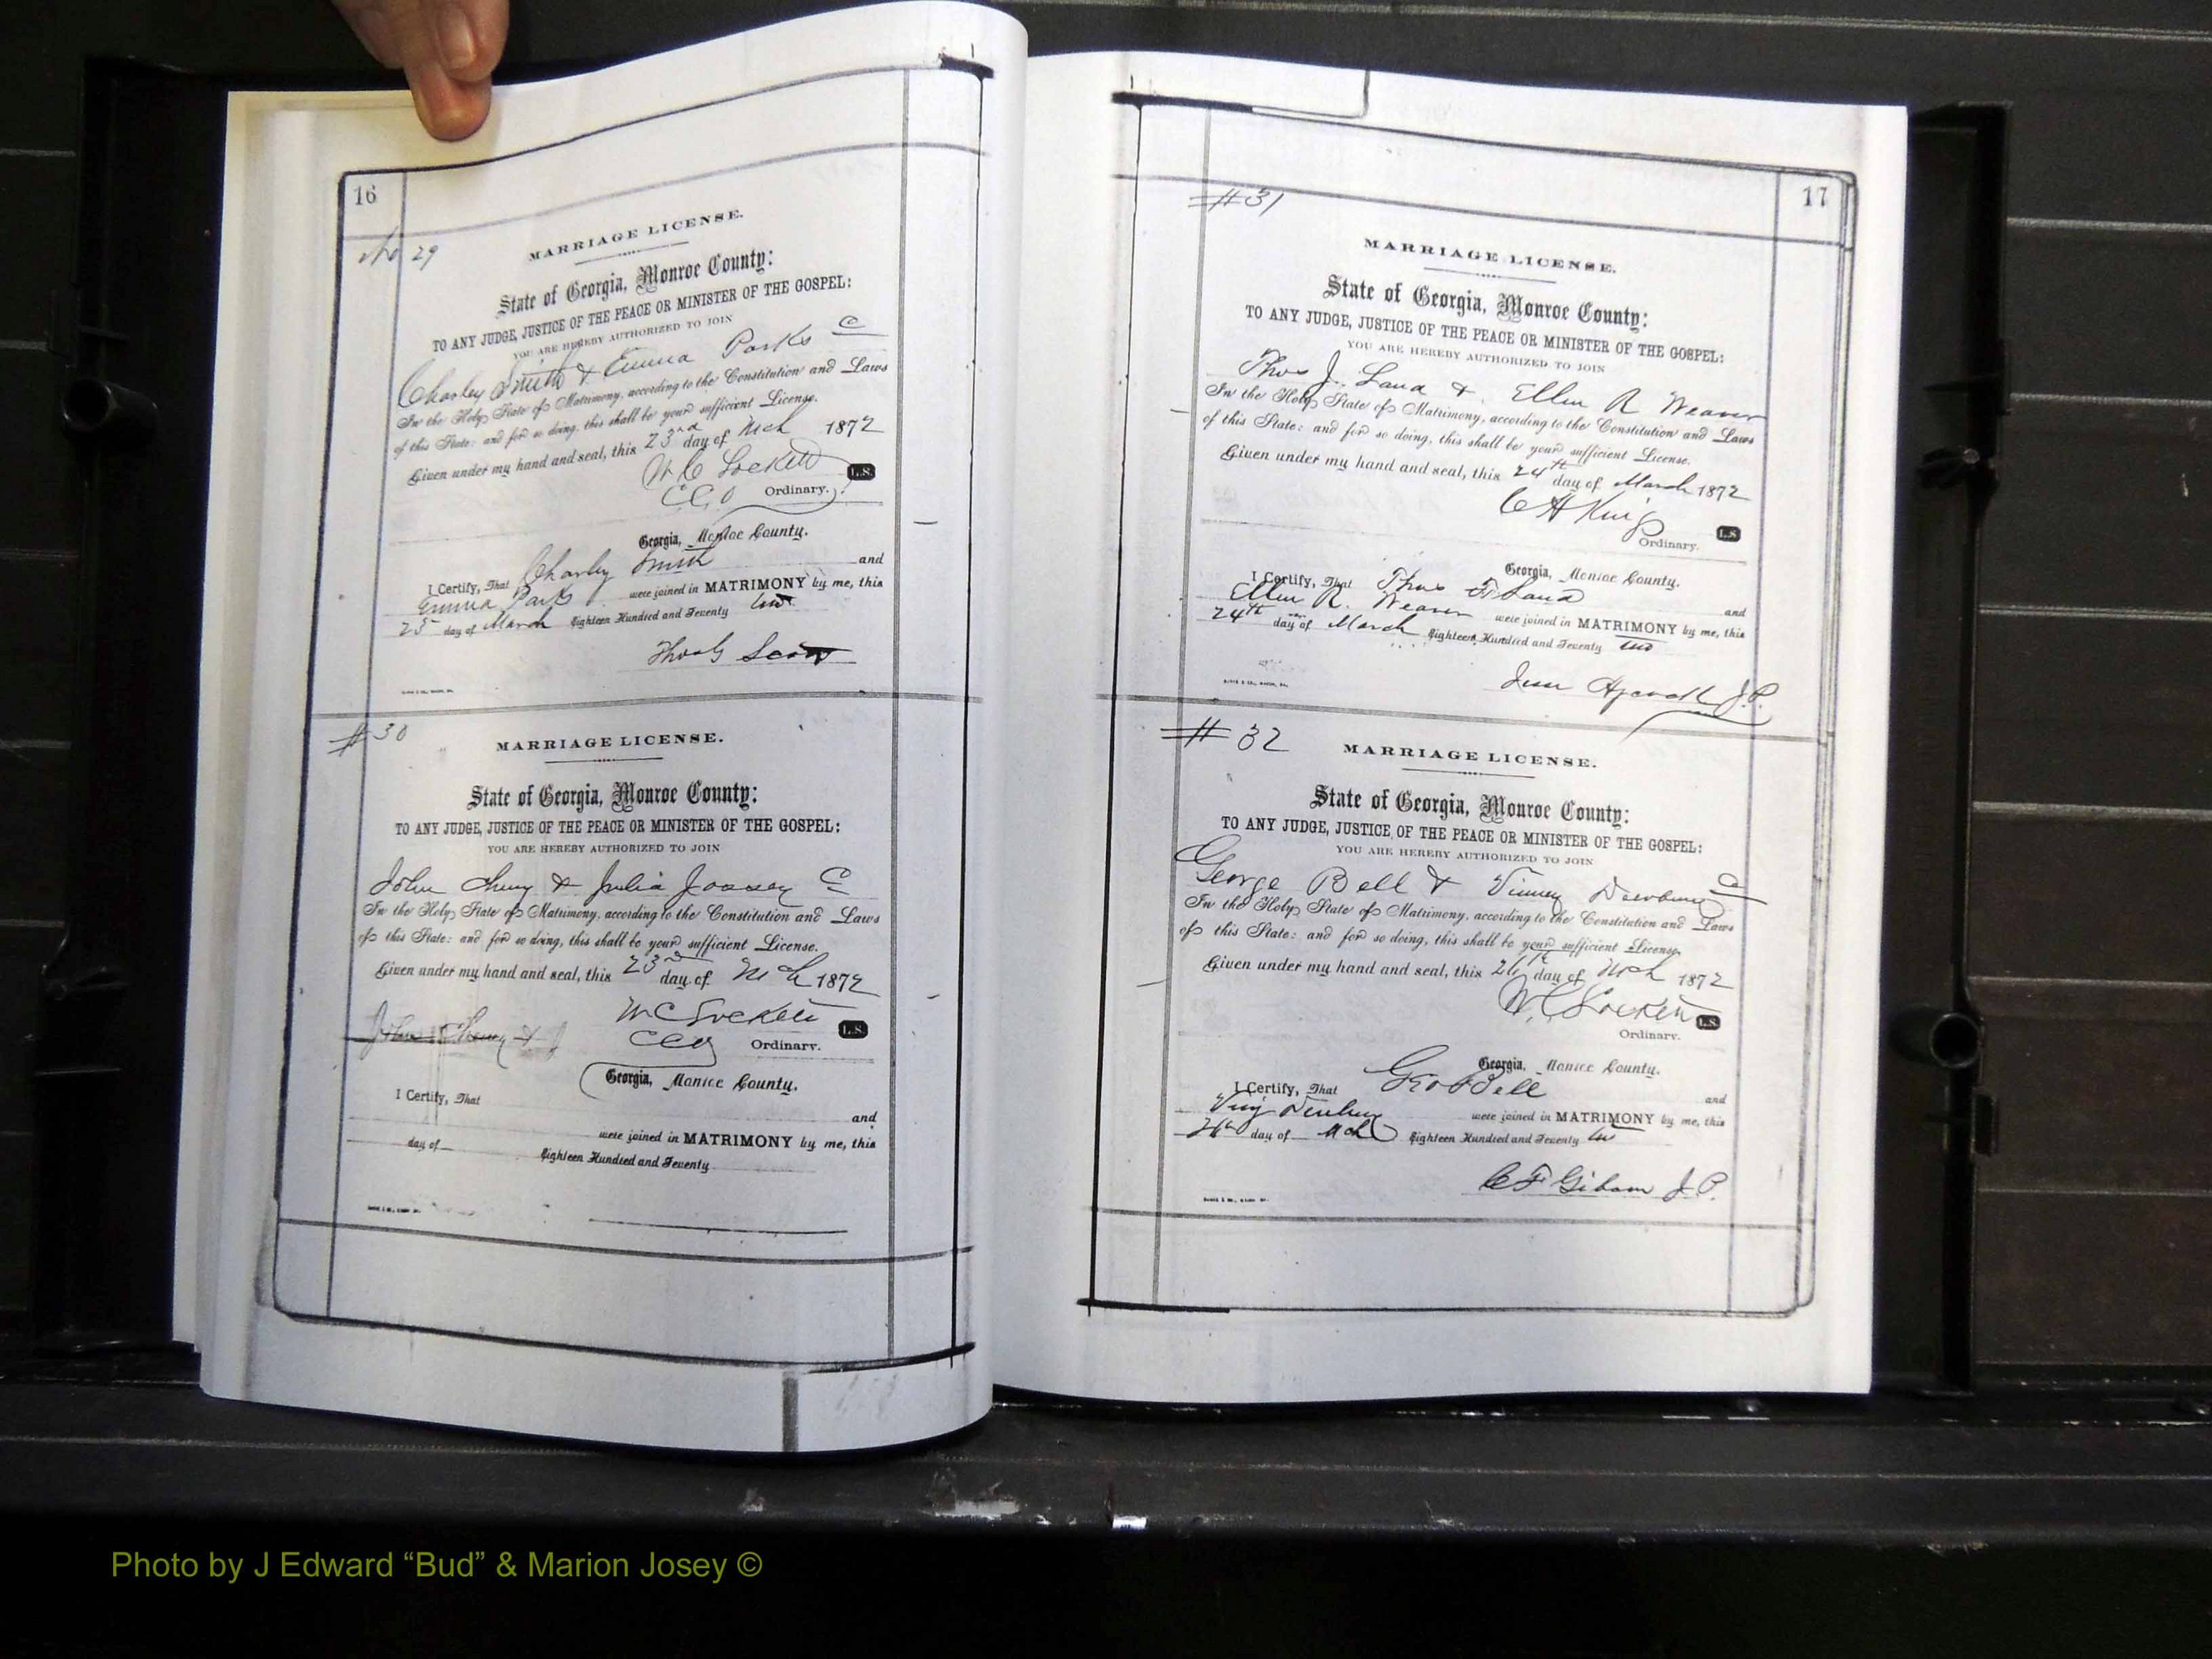 16
No 29
MARRIAGE LICENSE.
State of Georgia, Monroe County:
TO ANY JUDGE, JUSTICE OF THE PEACE OR MINISTER OF THE GOSPEL:
YOU ARE HEREBY AUTHORIZED TO JOIN
Charley Smith & Emma Parks C
In the Holy State of Matrimony, according to the Constitution and Laws
of this State: and for so doing, this shall be your sufficient License.
Given under my hand and seal, this 23rd day of Mch 1872
W C Lockett L.S.
C.C.O Ordinary.
Georgia, Monroe County.
I Certify, That Charley Smith and
Emma Parks were joined in MATRIMONY by me, this
23 day of March Eighteen Hundred and Seventy two
Scott
# 30
MARRIAGE LICENSE.
State of Georgia, Monroe County:
TO ANY JUDGE, JUSTICE OF THE PEACE OR MINISTER OF THE GOSPEL:
YOU ARE HEREBY AUTHORIZED TO JOIN
John & Julia Jossey C
In the Holy State of Matrimony, according to the Constitution and Laws
of this State: and for so doing, this shall be your sufficient License.
Given under my hand and seal, this 23rd day of Mch 1872
W C Lockett L.S.
CCO Ordinary.
John & J
Georgia, Monroe County.
I Certify, That
and
were joined in MATRIMONY by me, this
day of Eighteen Hundred and Seventy
17
#31
MARRIAGE LICENSE.
State of Georgia, Monroe County:
TO ANY JUDGE, JUSTICE OF THE PEACE OR MINISTER OF THE GOSPEL:
YOU ARE HEREBY AUTHORIZED TO JOIN
Thos J. & Ellen R Weaver
In the Holy State of Matrimony, according to the Constitution and Laws
of this State: and for so doing, this shall be your sufficient License.
Given under my hand and seal, this 24th day of March 1872
C H King L.S
Ordinary.
Georgia, Monroe County.
I Certify, That Thos and
Ellen R. Weaver were joined in MATRIMONY by me, this
24th day of March Eighteen Hundred and Seventy two
J.P.
# 32
MARRIAGE LICENSE.
State of Georgia, Monroe County:
TO ANY JUDGE, JUSTICE OF THE PEACE OR MINISTER OF THE GOSPEL:
YOU ARE HEREBY AUTHORIZED TO JOIN
George Bell & C
In the Holy State of Matrimony, according to the Constitution and Laws
of this State: and for so doing, this shall be your sufficient License.
Given under my hand and seal, this 26th day of Mch 1872
W. C Lockett L.S.
Ordinary.
Georgia, Monroe County.
I Certify, That Geo Bell and
were joined in MATRIMONY by me, this
26th day of Mch Eighteen Hundred and Seventy two
C F Gibson J.P.
Photo by J Edward “Bud” & Marion Josey ©